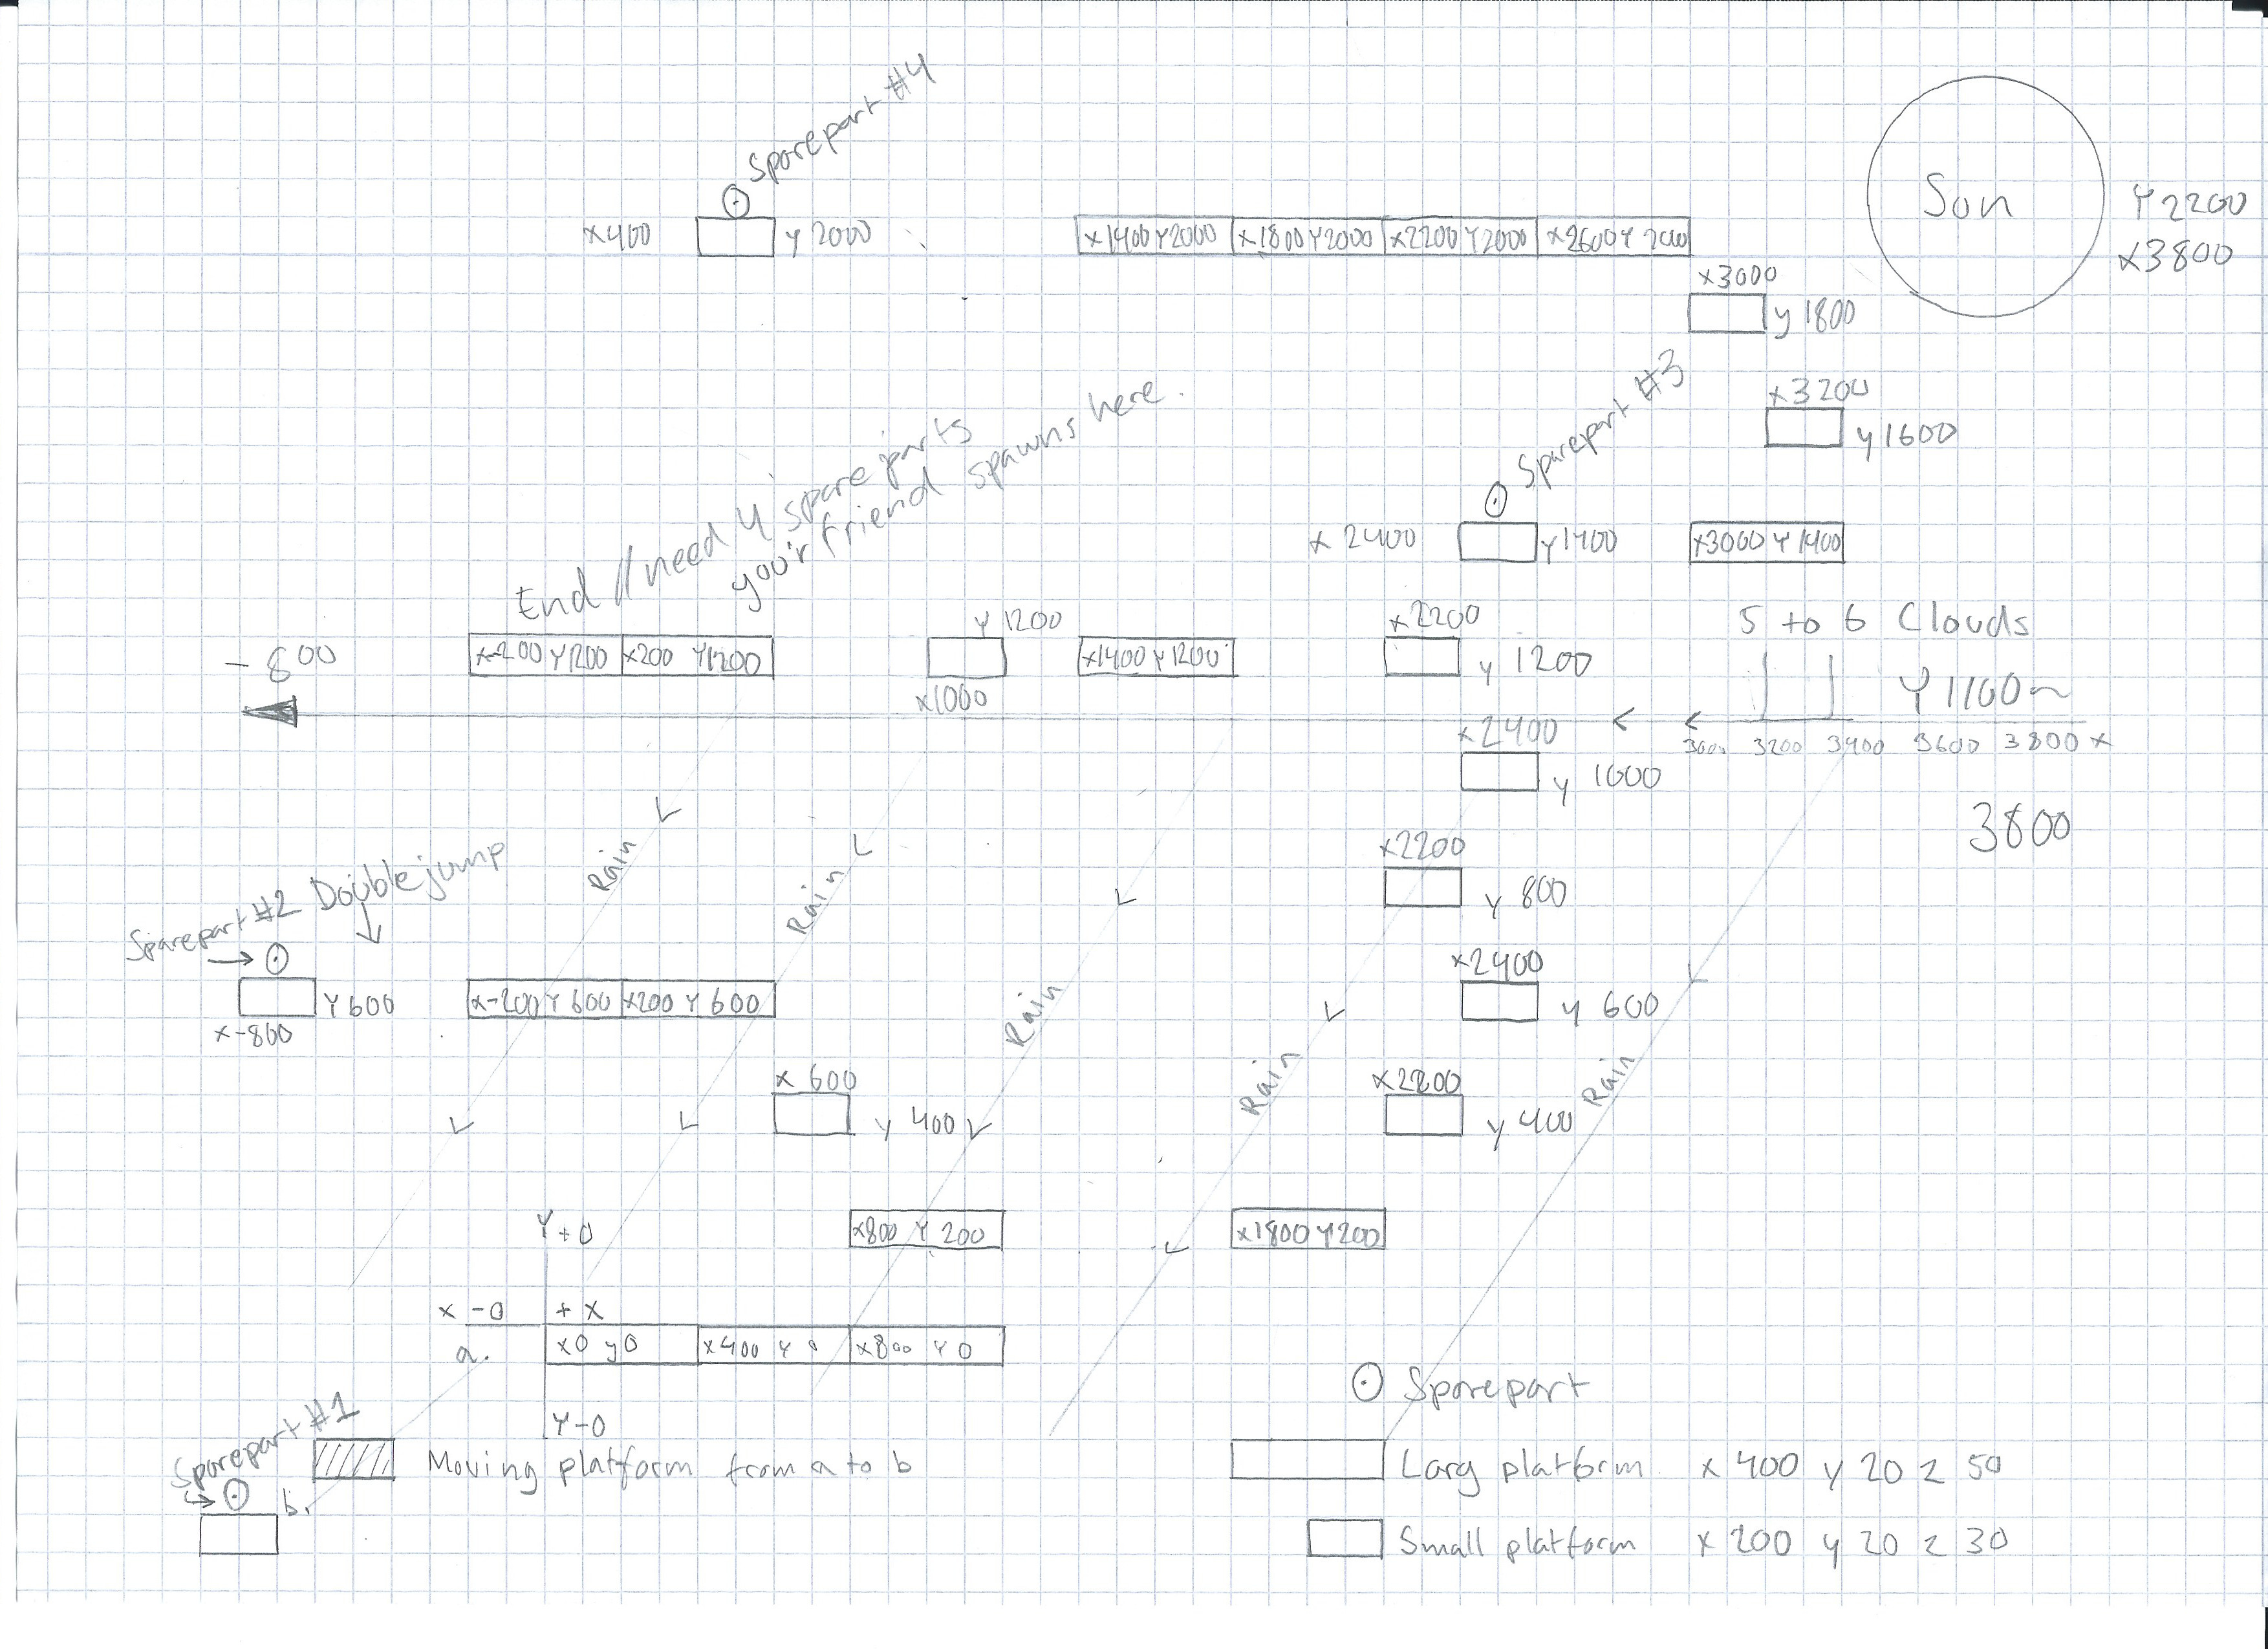 Sparepart #4
x400
y 2000
x1400 Y2000
x1800 Y2000
x2200 Y2000
x2600 Y 2000
Sun
Y 2200
x3800
x3000
y 1800
x3200
y 1600
Sparepart #3
x 2400
y1400
x3000 Y 1400
End // need 4 spare parts
you'r friend spawns here.
- 800
x-200 Y1200
x200 Y1200
Y 1200
x1000
x1400 Y 1200
x2200
y 1200
5 to 6 Clouds
Y 1100~
3000 3200 3400 3600 3800 x
x2400
y 1000
3800
Rain
Rain
Rain
Rain
Rain
x2200
y 800
Sparepart #2
Doublejump
Y 600
x-800
x-200 Y 600
x200 Y 600
x2400
y 600
x 600
y 400
x2200
y 400
x800 Y 200
x1800 Y 200
Y+0
x -0
+ x
a.
x0 y0
x400 Y 0
x800 Y 0
Y-0
Sparepart #1
b.
Moving platform from a to b
Sparepart
Larg platform x 400 y 20 z 50
Small platform x 200 y 20 z 30